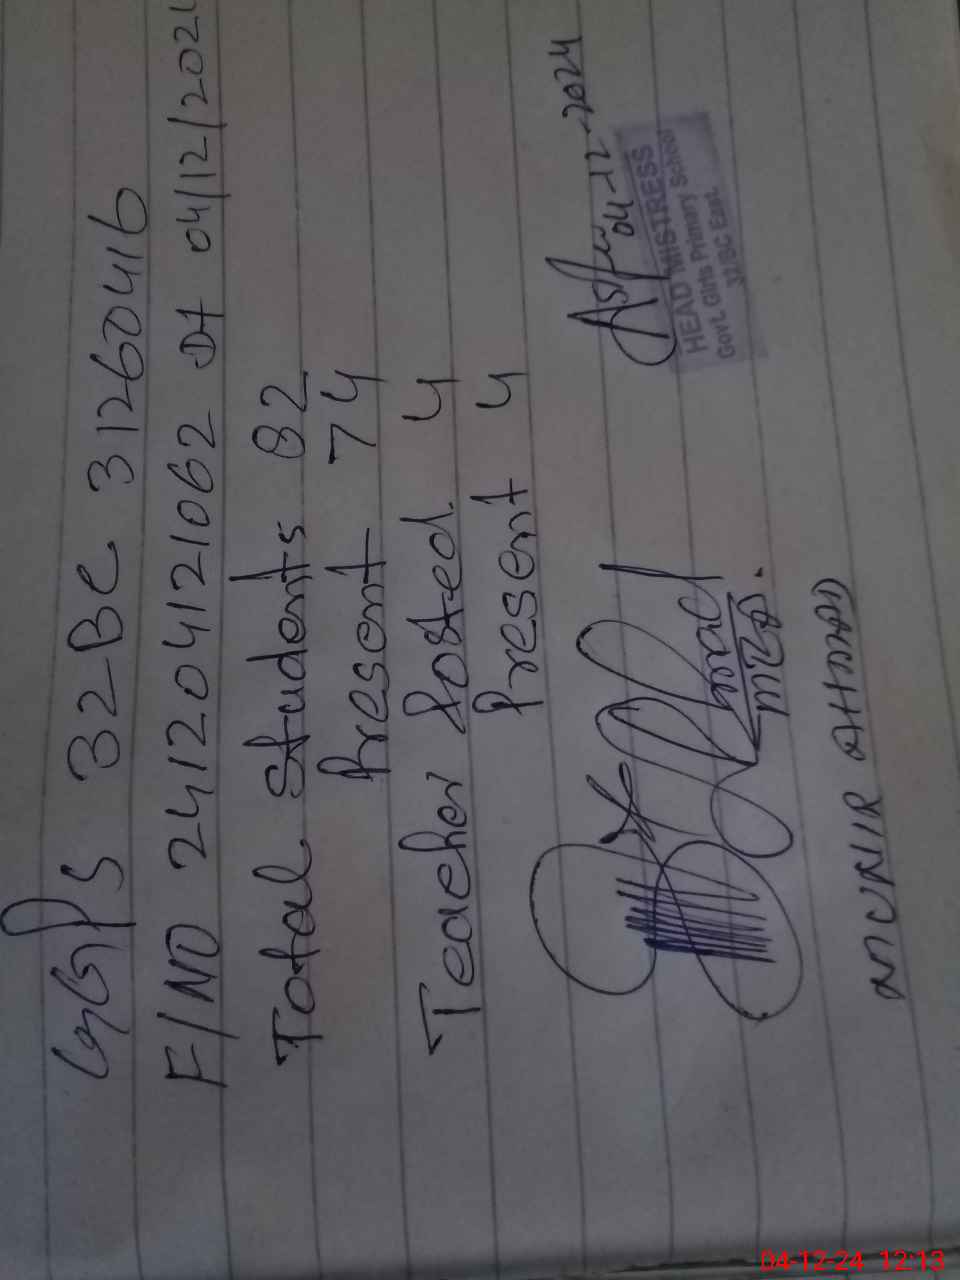 GGPS 32BC 31260416
F/NO 241204121062 Dt 04/12/202
Total Students 82
Present 74
Teacher Posted 4
Present 4
04-12-2024
HEAD MISTRESS
Govt. Girls Primary School
32/BC East
MUNIR AHMAD
04-12-24 12:13